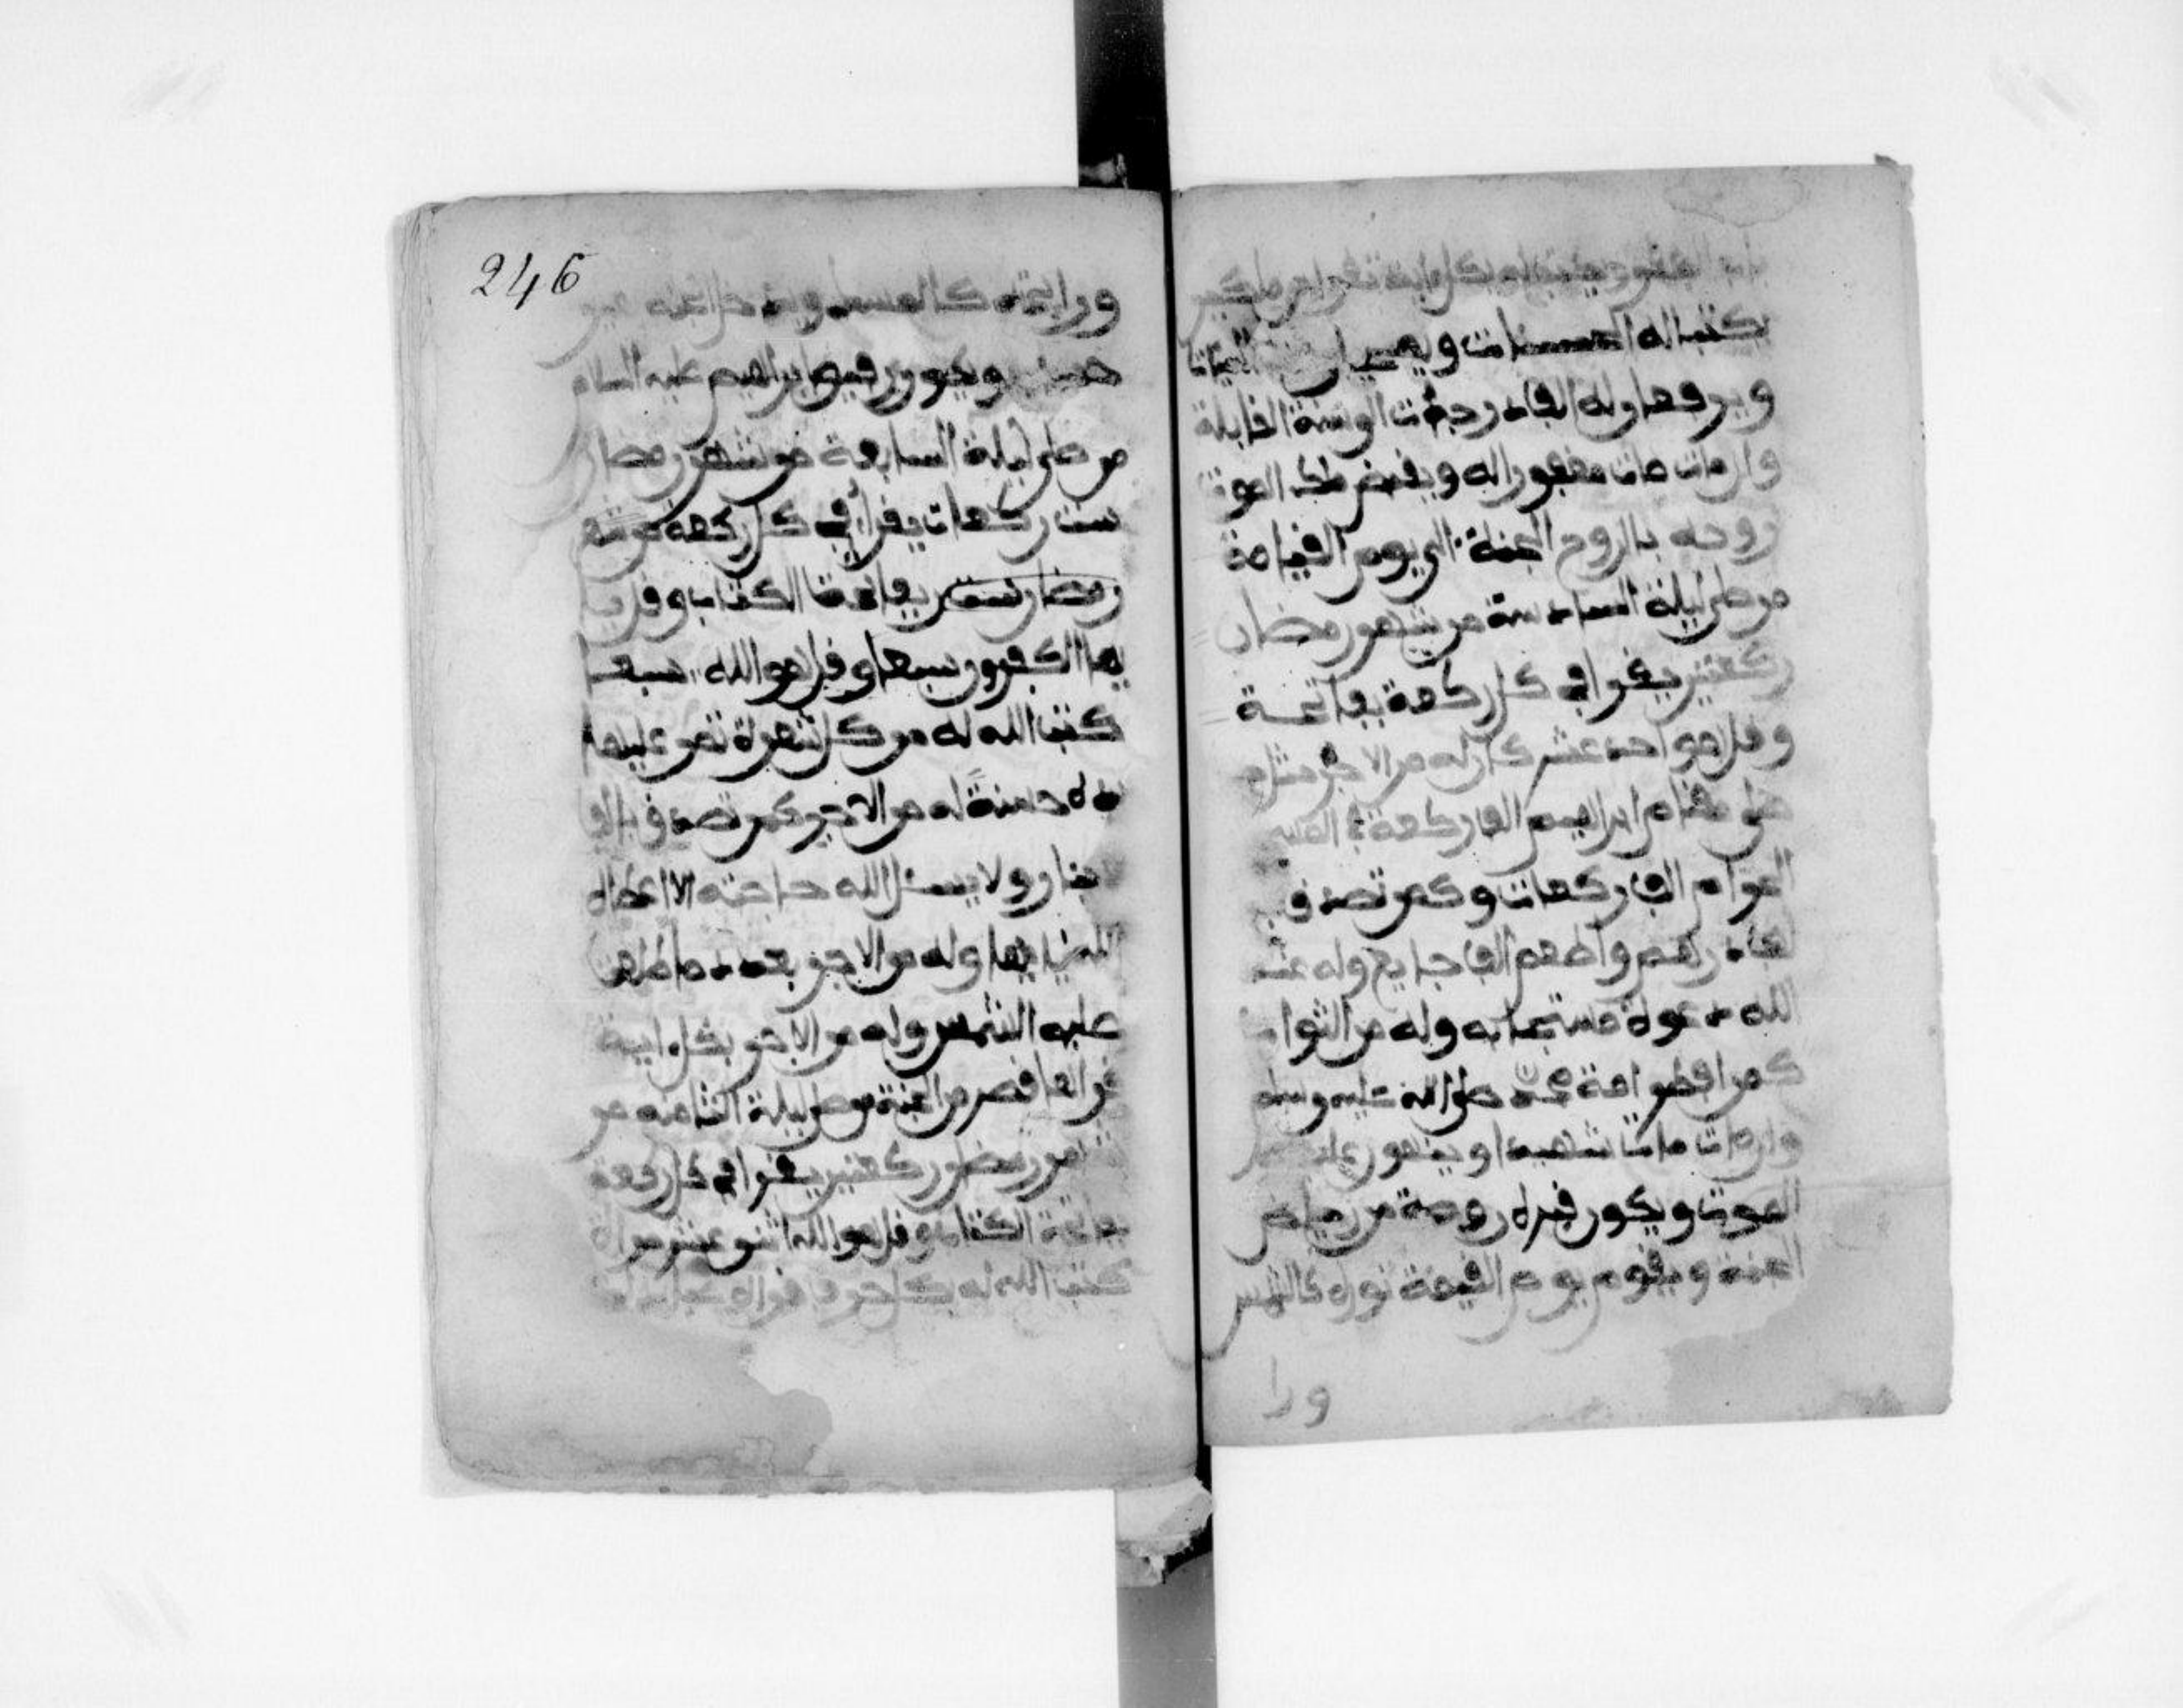 يكتب له الحسنات و
ويرفع له الف درجات الى سنة القابلة
وان مات مات مغفورا له ويقبض ملك الموت
روحه بالروح الجنة الى يوم القيامة
من صلى ليلة السادسة من شهر رمضان
ركعتين يقرا في كل ركعة بفاتحة
وقل هو احد عشر كان له من الاجر مثل من
صلى مقام ابراهيم الف ركعة في المسجد
الحرام الف ركعات وكمن تصدق
الف درهم واطعم الف جايع وله عند
الله دعوة مستجابه وله من الثواب
كمن افطر امة محمد صلى الله عليه وسلم
وان مات مات شهيدا ويهون عليه
الموت ويكون قبره روضة من رياض
الجنة ويقوم يوم القيمة نوره كالشمس
ورا
246
ورايحته كالمسك ويدخل الجنة بغير
حساب ويكون رفيق ابراهيم عليه السلام
من صلى ليلة السابعة من شهر رمضان
ست ركعات يقرا في كل ركعة من شهر
رمضان ست بفاتحة الكتاب وقل يا
يها الكفرون سبعا وقل هو الله سبعا
كتب الله له من كل شعرة تمر عليها
يده حسنة له من الاجر كمن تصدق بالف
دينار ولا يسئل الله حاجته الا اعطاه
الله اياها وله من الاجر بعدد ما طلعت
عليه الشمس وله من الاجر بكل اية
قراها قصر من الجنة من صلى ليلة الثامنة من
شهر رمضان ركعتين يقرا في كل ركعة
بفاتحة الكتاب وقل هو الله اثنى عشر مراة
كتب الله له بكل حرف قراه